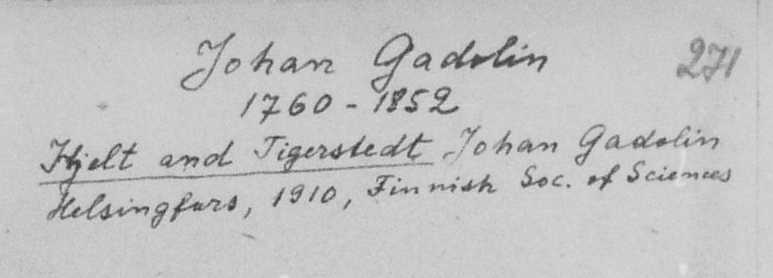 Johan Gadolin 271
1760 - 1852
Hjelt and Tigerstedt Johan Gadolin
Helsingfors, 1910, Finnish Soc. of Sciences